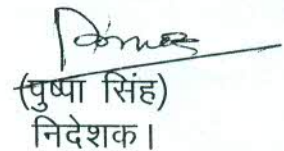 (पुष्पा सिंह)
निदेशक।